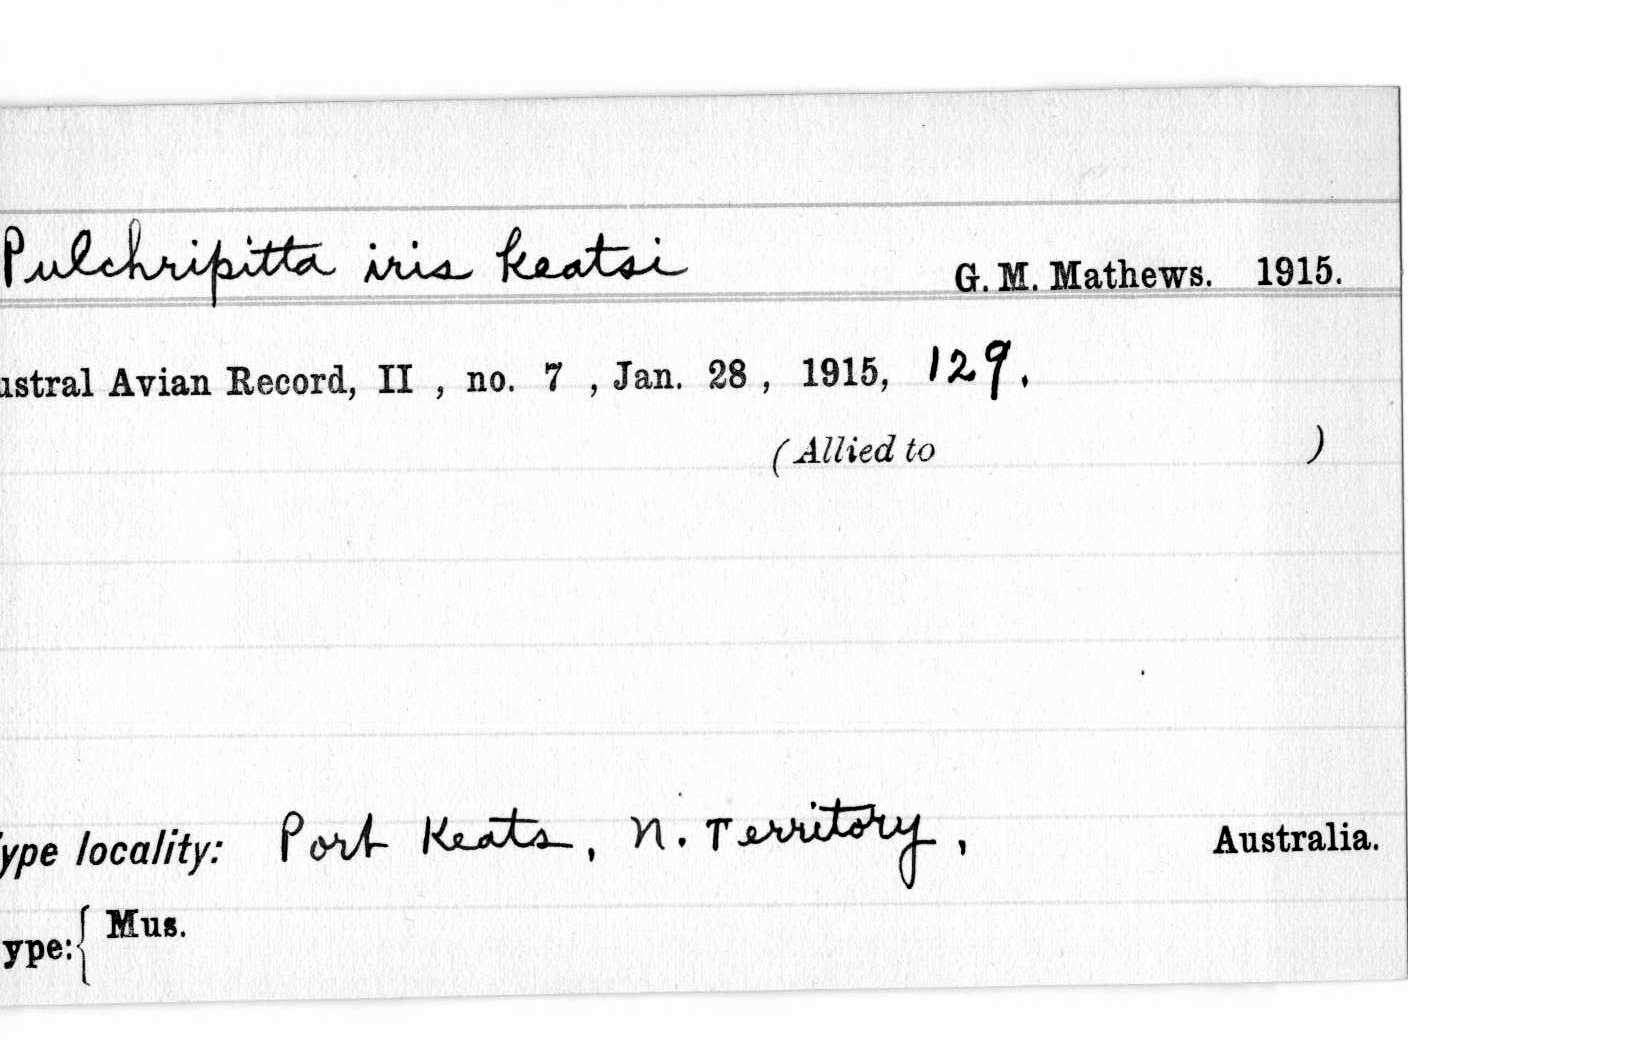 Pulchripitta iris keatsi G. M. Mathews. 1915.
ustral Avian Record, II , no. 7 , Jan. 28 , 1915, 129.
(Allied to )
ype locality: Port Keats, N. Territory, Australia.
ype: { Mus.